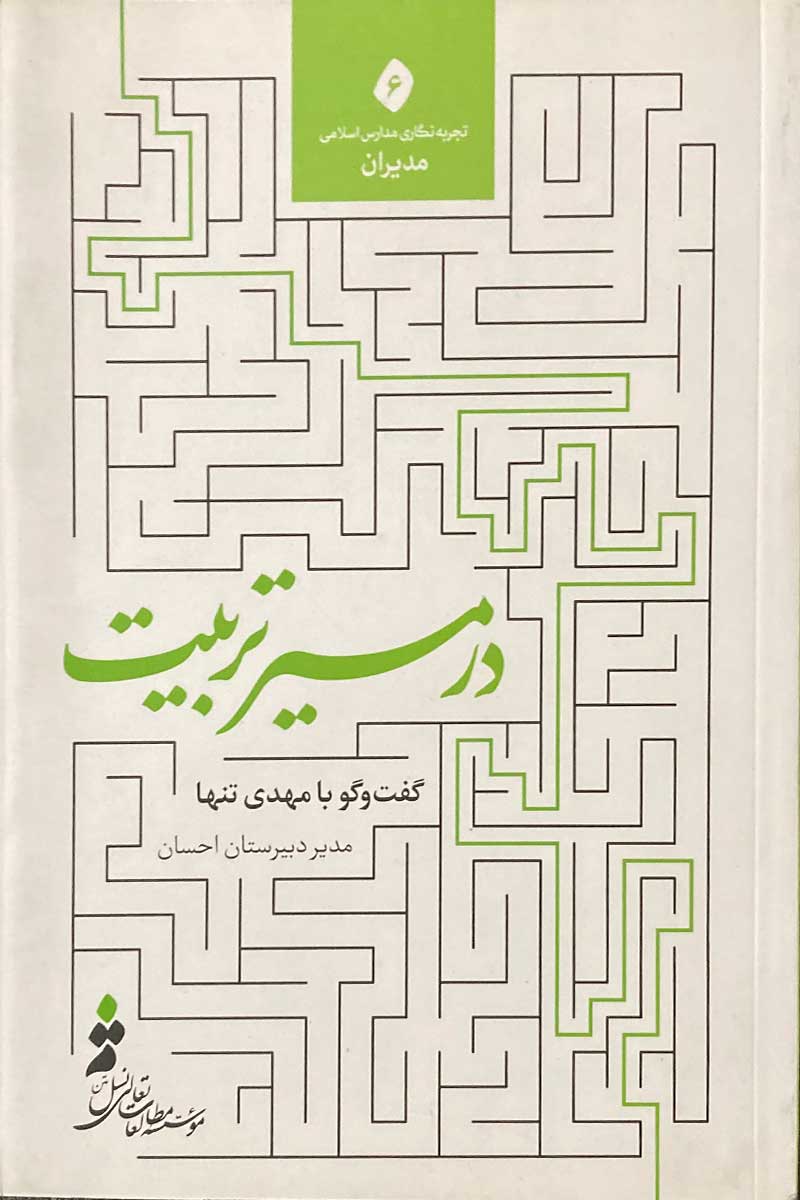 ۶
تجربه‌نگاری مدارس اسلامی
مدیران
در مسیر تربیت
گفت‌وگو با مهدی تنها
مدیر دبیرستان احسان
مؤسسه مطالعات تعالی نسل